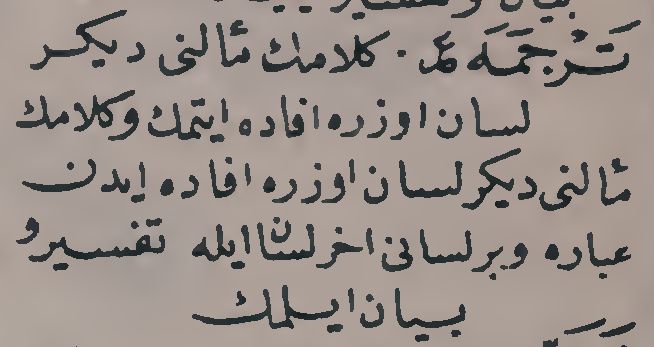 بيان وتفسير
تَرْجَمَه عد. كلامك مألنى ديكر
لسان اوزره افاده ايتمك وكلامك
مألنى ديكر لسان اوزره افاده ايدن
عباره وبر لسانى اخر لسان ايله تفسير و
بيان ايلمك